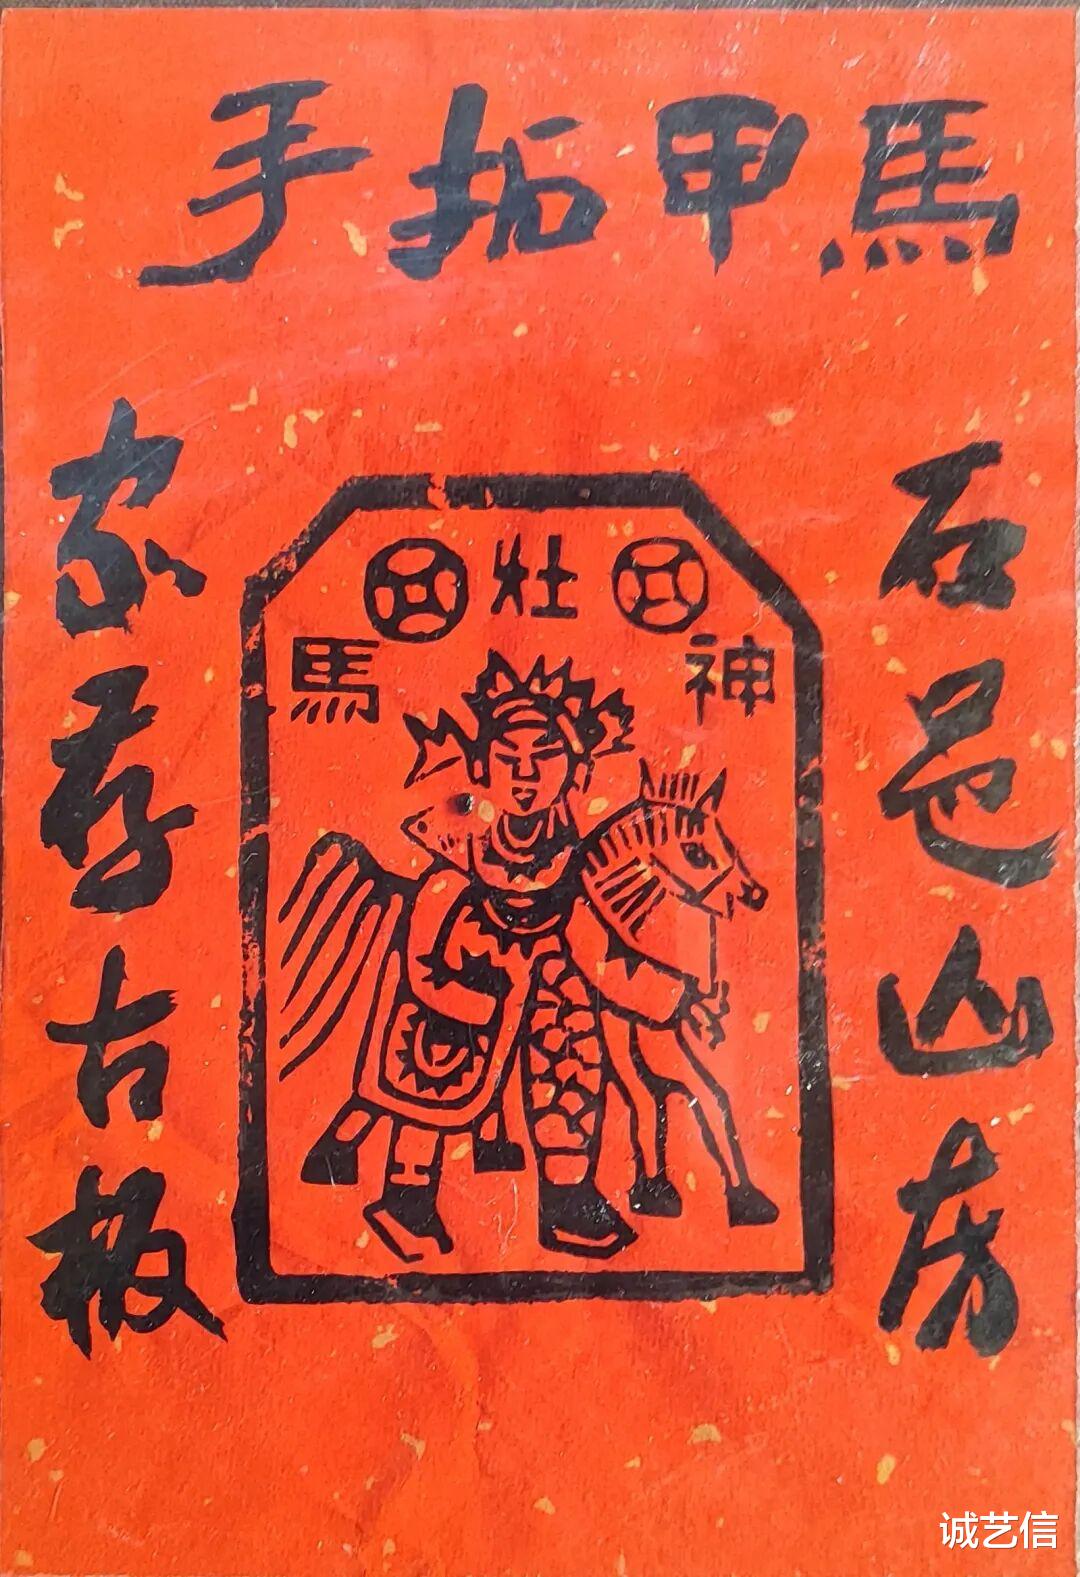 馬甲拓手
石邑山房
神壮馬
家存古板
诚艺信